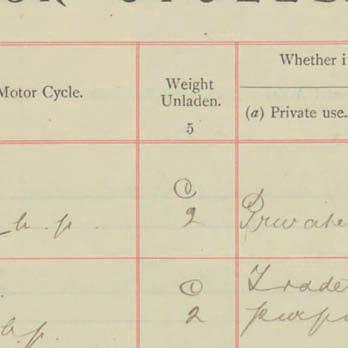 Motor Cycle.
Weight
Unladen.
5
Whether i
(a) Private use.
h.p.
2
Private
h.p.
2
Trade
purpo